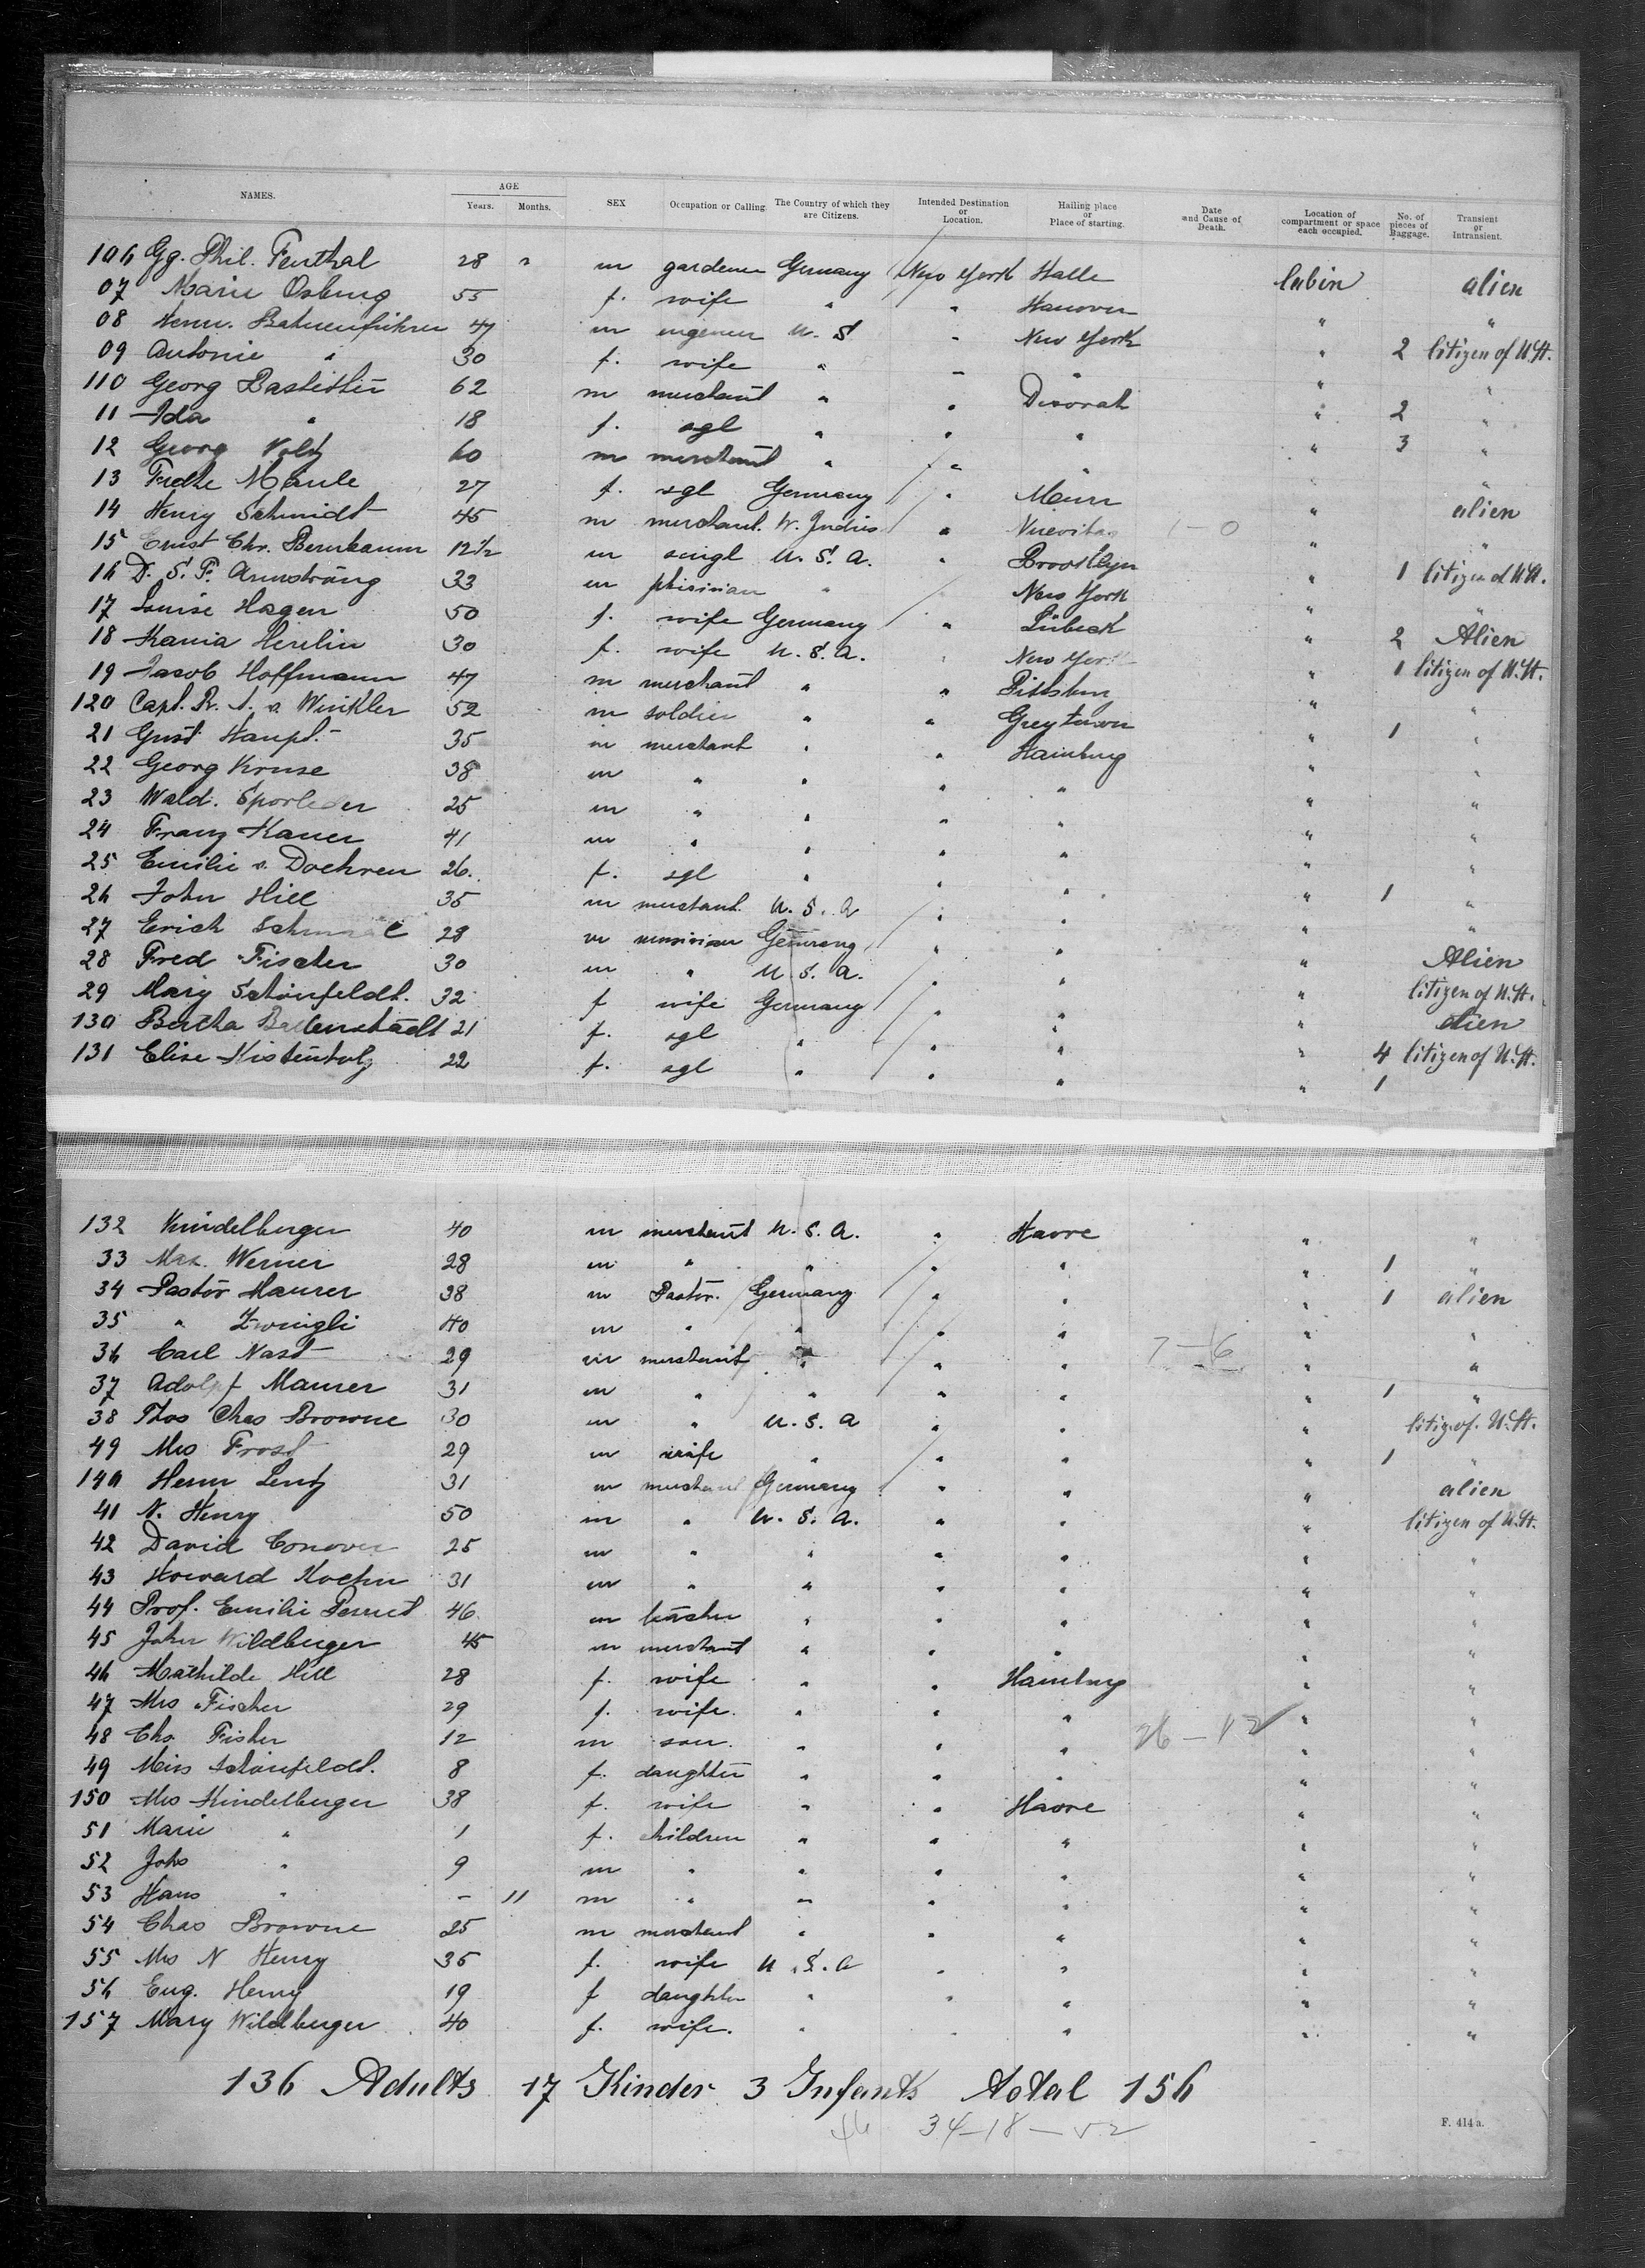 NAMES. AGE Years. Months. SEX Occupation or Calling. The Country of which they are Citizens. Intended Destination or Location. Hailing place or Place of starting. Date and Cause of Death. Location of compartment or space each occupied. No. of pieces of Baggage. Transient or Intransient.
106 Gg. Phil. Fenthal 28 " m gardener Germany New York Halle Cabin alien
07 Marie Osburg 55 f. wife " " Hanover " "
08 Herm. Bahnenführer 47 m engeneer U. S " New York " 2 Citizen of U. St.
09 Antonie " 30 f. wife " " " " "
110 Georg 62 m merchant " " " 2 "
11 Ida " 18 f. sgl " " " " 3 "
12 Georg Voltz 60 m merchant " " " "
13 27 f. sgl Germany " " alien
14 Henry Schmidt 45 m merchant. W. Indies " Nuevitas 1 - 0 " "
15 Ernst Chr. Bernbaum 12½ m singl U. S. A. " Brooklyn " 1 Citizen of U. St.
16 D. S. F. Armstrang 33 m phisician " New York " "
17 Louise Hagen 50 f. wife Germany " Lübeck " 2 Alien
18 30 f. wife U. S. A. " New York " 1 Citizen of U. St.
19 Jacob Hoffmann 47 m merchant " " Pittsburg " "
120 Capt. Winkler 52 m soldier " " Greytown " 1 "
21 Gust. Haupt. 35 m merchant " " Hamburg " "
22 Georg Kruse 38 m " " " " " "
23 Wald. Sporleder 25 m " " " " " "
24 Franz Kauer 41 m " " " " " "
25 Emilie v. Doehren 26. f. sgl " " " " 1 "
26 John Hill 35 m merchant U. S. A " " " "
27 Erich 28 m Germany " " " Alien
28 Fred Fischer 30 m " U. S. A. " " " Citizen of U. St.
29 Mary Schönfeldt. 32 f wife Germany " " " alien
130 Bertha Ballenstädt 21 f. sgl " " " " 4 Citizen of U. St.
131 Elise Kistenholz 22 f. sgl " " " " 1
132 Kindelberger 40 m merchant U. S. A. " Havre " "
33 Max. Werner 28 m " " " " " 1 "
34 Pastor Maurer 38 m Pastor. Germany " " " 1 alien
35 " Zwingli 40 m " " " " " "
36 Carl Nast 29 m merchant " " " 7 - 6 " "
37 Adolpf Maurer 31 m " " " " " 1 "
38 Thos Chas Browne 30 m " U. S. A " " " Citiz. of. U. St.
49 Mrs Frost 29 m wife " " " " 1 "
140 Herm Lentz 31 m merchant Germany " " " alien
41 N. Henry 50 m " U. S. A. " " " Citizen of U. St.
42 David Conover 25 m " " " " " "
43 Howard Koehn 31 m " " " " " "
44 Prof. Emilie Perret 46 m teacher " " " " "
45 John Wildberger 45 m merchant " " " " "
46 Mathilde Hill 28 f. wife " " Hamburg " "
47 Mrs Fischer 29 f. wife. " " " " "
48 Chs. Fisher 12 m son. " " " 26 - 12 " "
49 Miss Schönfeldt. 8 f. daughter " " " " "
150 Mrs Kindelberger 38 f. wife " " Havre " "
51 Marie " 1 f. children " " " " "
52 Johs " 9 m " " " " " "
53 Hans " - 11 m " " " " " "
54 Chas Browne 25 m merchant " " " " "
55 Mrs N Henry 35 f. wife U. S. A " " " "
56 Eug. Henry 19 f daughter " " " " "
157 Mary Wildberger 40 f. wife. " " " " "
136 Adults 17 Kinder 3 Infants total 156
34-18-52
F. 414 a.